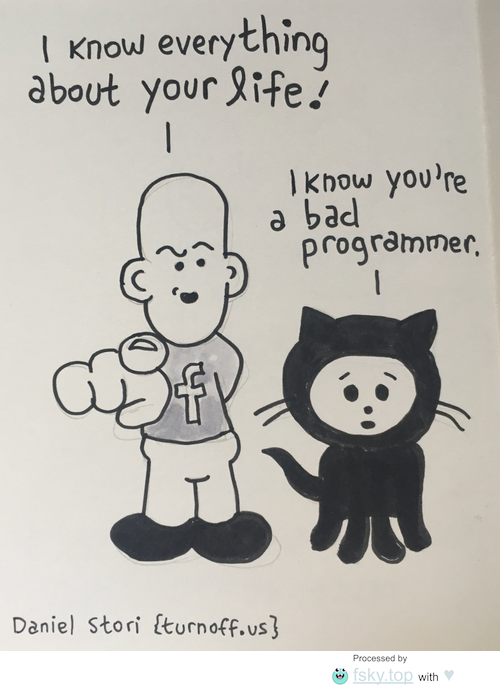 I know everything
about your life!
I know you're
a bad
programmer.
f
Daniel Stori {turnoff.us}
Processed by
fsky.top with ♥